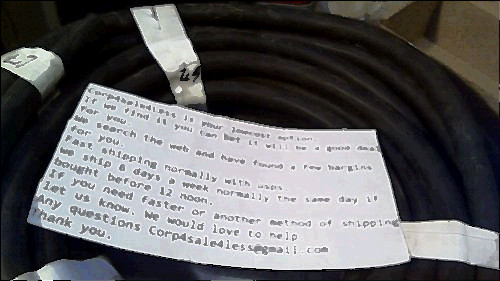 Corp4sale4less is your lowest option
If we find it you can bet it will be a good deal
for you.
We search the web and have found a few bargins
for you.
Fast shipping normally with usps
We ship 6 days a week normally the same day if
bought before 12 noon.
If you need faster or another method of shipping
let us know. We would love to help
Any questions Corp4sale4less@gmail.com
Thank you.